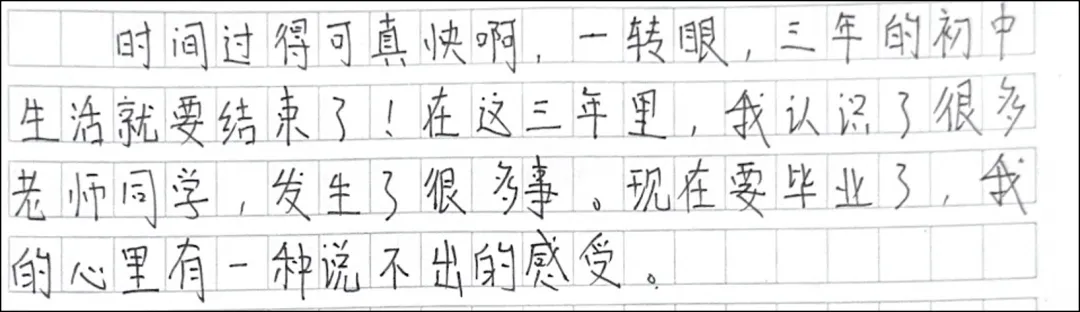 时间过得可真快啊，一转眼，三年的初中
生活就要结束了！在这三年里，我认识了很多
老师同学，发生了很多事。现在要毕业了，我
的心里有一种说不出的感受。